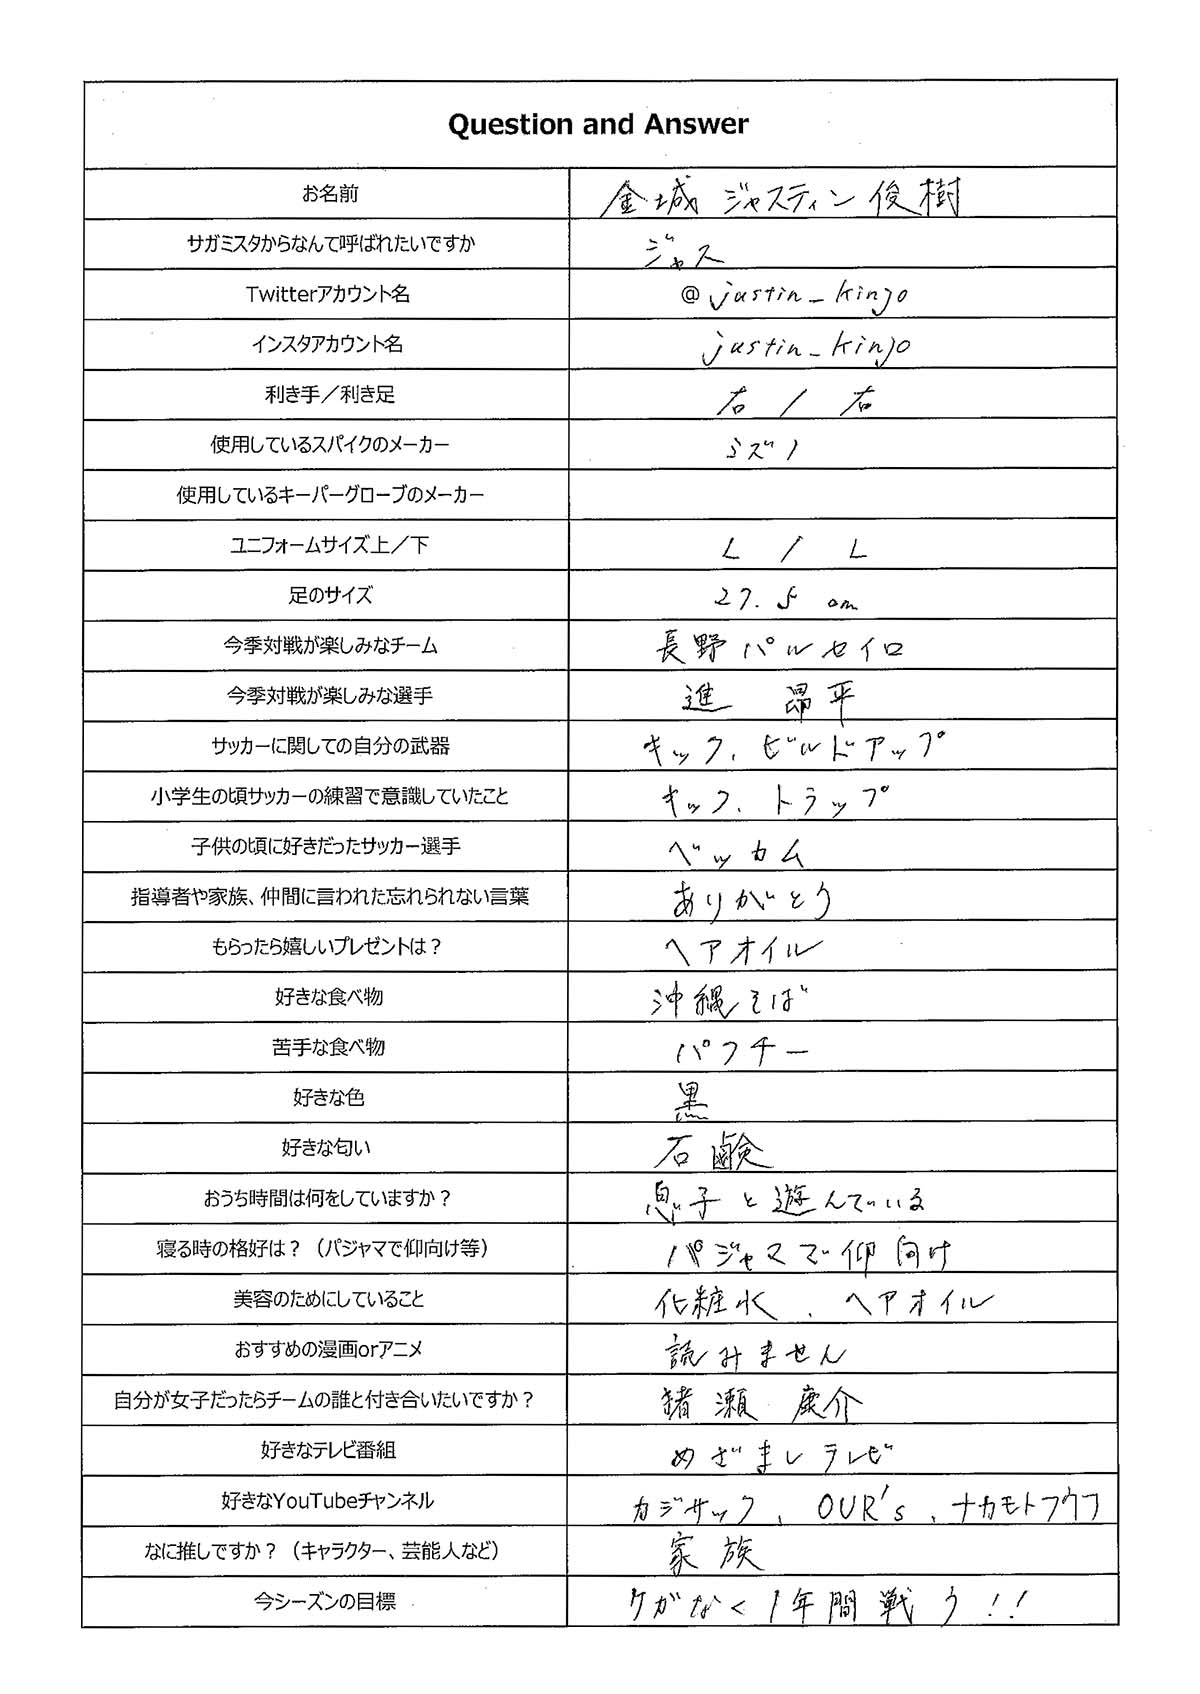 Question and Answer
お名前 金城 ジャスティン 俊樹
サガミスタからなんて呼ばれたいですか ジャス
Twitterアカウント名 @justin_kinjo
インスタアカウント名 justin_kinjo
利き手／利き足 右 / 右
使用しているスパイクのメーカー ミズノ
使用しているキーパーグローブのメーカー
ユニフォームサイズ上／下 L / L
足のサイズ 27.5 cm
今季対戦が楽しみなチーム 長野パルセイロ
今季対戦が楽しみな選手 進 昂平
サッカーに関しての自分の武器 キック、ビルドアップ
小学生の頃サッカーの練習で意識していたこと キック、トラップ
子供の頃に好きだったサッカー選手 ベッカム
指導者や家族、仲間に言われた忘れられない言葉 ありがとう
もらったら嬉しいプレゼントは？ ヘアオイル
好きな食べ物 沖縄そば
苦手な食べ物 パクチー
好きな色 黒
好きな匂い 石鹸
おうち時間は何をしていますか？ 息子と遊んでいる
寝る時の格好は？（パジャマで仰向け等） パジャマで仰向け
美容のためにしていること 化粧水、ヘアオイル
おすすめの漫画orアニメ 読みません
自分が女子だったらチームの誰と付き合いたいですか？ 猪瀬 康介
好きなテレビ番組 めざましテレビ
好きなYouTubeチャンネル カジサック、OUR's、ナカモトフウフ
なに推しですか？（キャラクター、芸能人など） 家族
今シーズンの目標 ケガなく1年間戦う!!